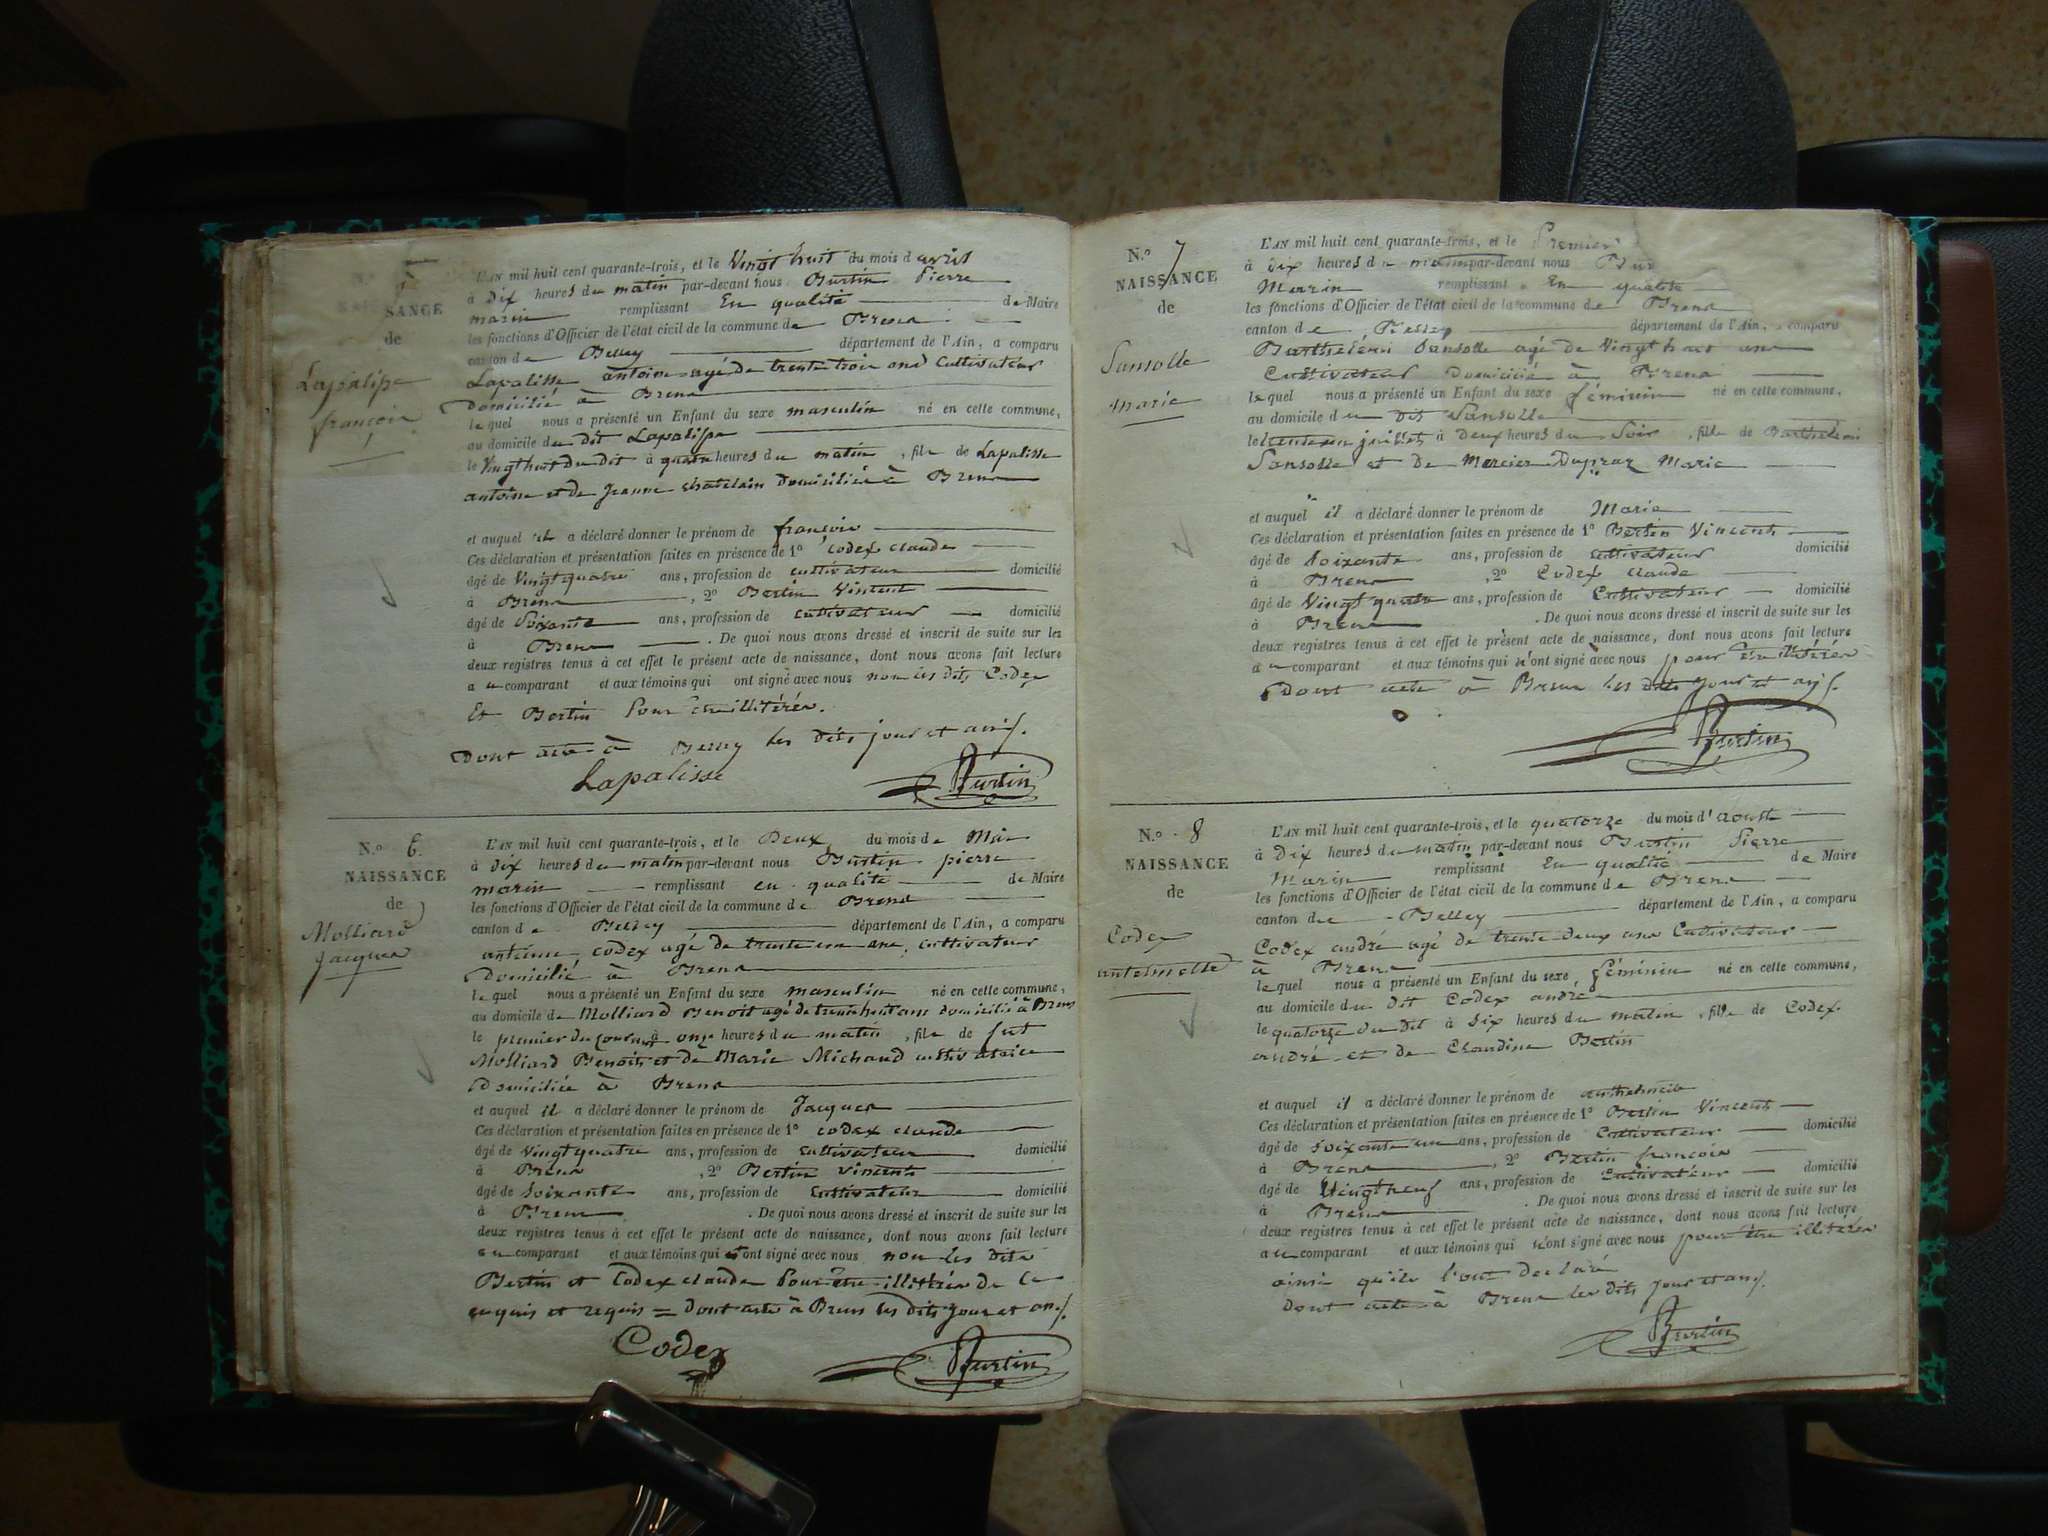 N.º 5
NAISSANCE
de
Lapalisse
françois
L'AN mil huit cent quarante-trois, et le Vingt huit du mois d'avril
à dix heures du matin par-devant nous Burtin Pierre
marin remplissant En qualité de Maire
les fonctions d'Officier de l'état civil de la commune de Brens
canton de Belley département de l'Ain, a comparu
Lapalisse antoine agé de trente trois ans Cultivateur
Domicilié à Brens
lequel nous a présenté un Enfant du sexe masculin né en cette commune,
au domicile du dit Lapalisse
le Vingt huit du dit à quatre heures du matin, fils de Lapalisse
antoine et de Jeanne chatelain domiciliés à Brens
et auquel il a déclaré donner le prénom de françois
Ces déclaration et présentation faites en présence de 1º Codex claude
âgé de Vingt quatre ans, profession de cultivateur domicilié
à Brens, 2º Bertin Vincent
âgé de Soixante ans, profession de cultivateur domicilié
à Brens. De quoi nous avons dressé et inscrit de suite sur les
deux registres tenus à cet effet le présent acte de naissance, dont nous avons fait lecture
au comparant et aux témoins qui ont signé avec nous non les dits Codex
Et Bertin Pour être illitérés.
Dont acte à Belley les dits jour et an
Lapalisse Burtin
N.º 6
NAISSANCE
de
Molliard
Jacques
L'AN mil huit cent quarante-trois, et le Deux du mois de Mai
à dix heures du matin par-devant nous Burtin pierre
marin remplissant en qualité de Maire
les fonctions d'Officier de l'état civil de la commune de Brens
canton de Belley département de l'Ain, a comparu
antoine codex agé de trente un ans, cultivateur
Domicilié à Brens
lequel nous a présenté un Enfant du sexe masculin né en cette commune,
au domicile de Molliard Benoit agé de trente huit ans domicilié à Brens
le premier du courant à onze heures du matin, fils de fut
Molliard Benoit et de Marie Michaud cultivatrice
Domiciliée à Brens
et auquel il a déclaré donner le prénom de Jacques
Ces déclaration et présentation faites en présence de 1º codex claude
âgé de Vingt quatre ans, profession de cultivateur domicilié
à Brens, 2º Bertin vincent
âgé de Soixante ans, profession de cultivateur domicilié
à Brens. De quoi nous avons dressé et inscrit de suite sur les
deux registres tenus à cet effet le présent acte de naissance, dont nous avons fait lecture
au comparant et aux témoins qui ont signé avec nous non les dits
Bertin et Codex claude Pour être illitérés de ce
enquis et requis = dont acte à Brens les dits jour et an
Codex Burtin
N.º 7
NAISSANCE
de
Sansolle
Marie
L'AN mil huit cent quarante-trois, et le Premier
à dix heures du matin par-devant nous Bur
Marin remplissant En qualité
les fonctions d'Officier de l'état civil de la commune de Brens
canton de Belley département de l'Ain, a comparu
Barthelémi Sansolle agé de Vingt huit ans
Cultivateur Domicilié à Brens
lequel nous a présenté un Enfant du sexe féminin né en cette commune,
au domicile du dit Sansolle
le trente un juillet à deux heures du Soir, fille de Barthelémi
Sansolle et de Mercier Dupraz Marie
et auquel il a déclaré donner le prénom de Marie
Ces déclaration et présentation faites en présence de 1º Bertin Vincent
âgé de Soixante ans, profession de cultivateur domicilié
à Brens, 2º Codex claude
âgé de Vingt quatre ans, profession de Cultivateur domicilié
à Brens. De quoi nous avons dressé et inscrit de suite sur les
deux registres tenus à cet effet le présent acte de naissance, dont nous avons fait lecture
au comparant et aux témoins qui n'ont signé avec nous pour être illitérés
Dont acte à Brens les dits jour et an
Burtin
N.º 8
NAISSANCE
de
Codex
antelmette
L'AN mil huit cent quarante-trois, et le quatorze du mois d'aoust
à dix heures du matin par-devant nous Burtin Pierre
Marin remplissant En qualité de Maire
les fonctions d'Officier de l'état civil de la commune de Brens
canton de Belley département de l'Ain, a comparu
Codex andré agé de trente deux ans Cultivateur
à Brens
lequel nous a présenté un Enfant du sexe féminin né en cette commune,
au domicile du dit Codex andré
le quatorze du dit à Six heures du matin, fille de Codex
andré et de Claudine Bertin
et auquel il a déclaré donner le prénom de
Ces déclaration et présentation faites en présence de 1º Bertin Vincent
âgé de Soixante un ans, profession de Cultivateur domicilié
à Brens, 2º Bertin françois
âgé de Vingt neuf ans, profession de Cultivateur domicilié
à Brens. De quoi nous avons dressé et inscrit de suite sur les
deux registres tenus à cet effet le présent acte de naissance, dont nous avons fait lecture
au comparant et aux témoins qui n'ont signé avec nous pour être illitérés
ainsi qu'ils l'ont declaré
dont acte à Brens les dits jour et an
Burtin